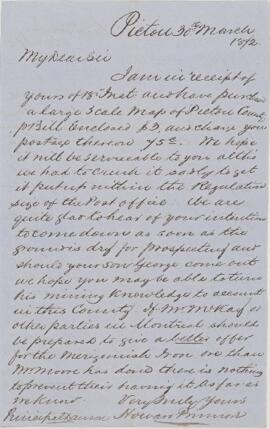 Pictou 30th March
1872
My Dear Sir
I am in receipt of
yours of 18 Inst. and have purchased
a large Scale Map of Pictou County
p Bill Enclosed $3, and charge you
postage thereon 75c. We hope
it will be serviceable to you altho
we had to crush it sadly to get
it put up within the Regulation
size of the Post office. We are
quite glad to hear of your intention
to come down as soon as the
ground is dry for prospecting and
should your son George come out
we hope you may be able to turn
his mining Knowledge to account
in this County. If Mr McKay or
other parties in Montreal should
be prepared to give a better offer
for the Merigomish Iron ore than
Mr Moore has done there is nothing
to prevent their having it as far as
we know.
Very truly Yours
Howard Primrose
Principal Dawson